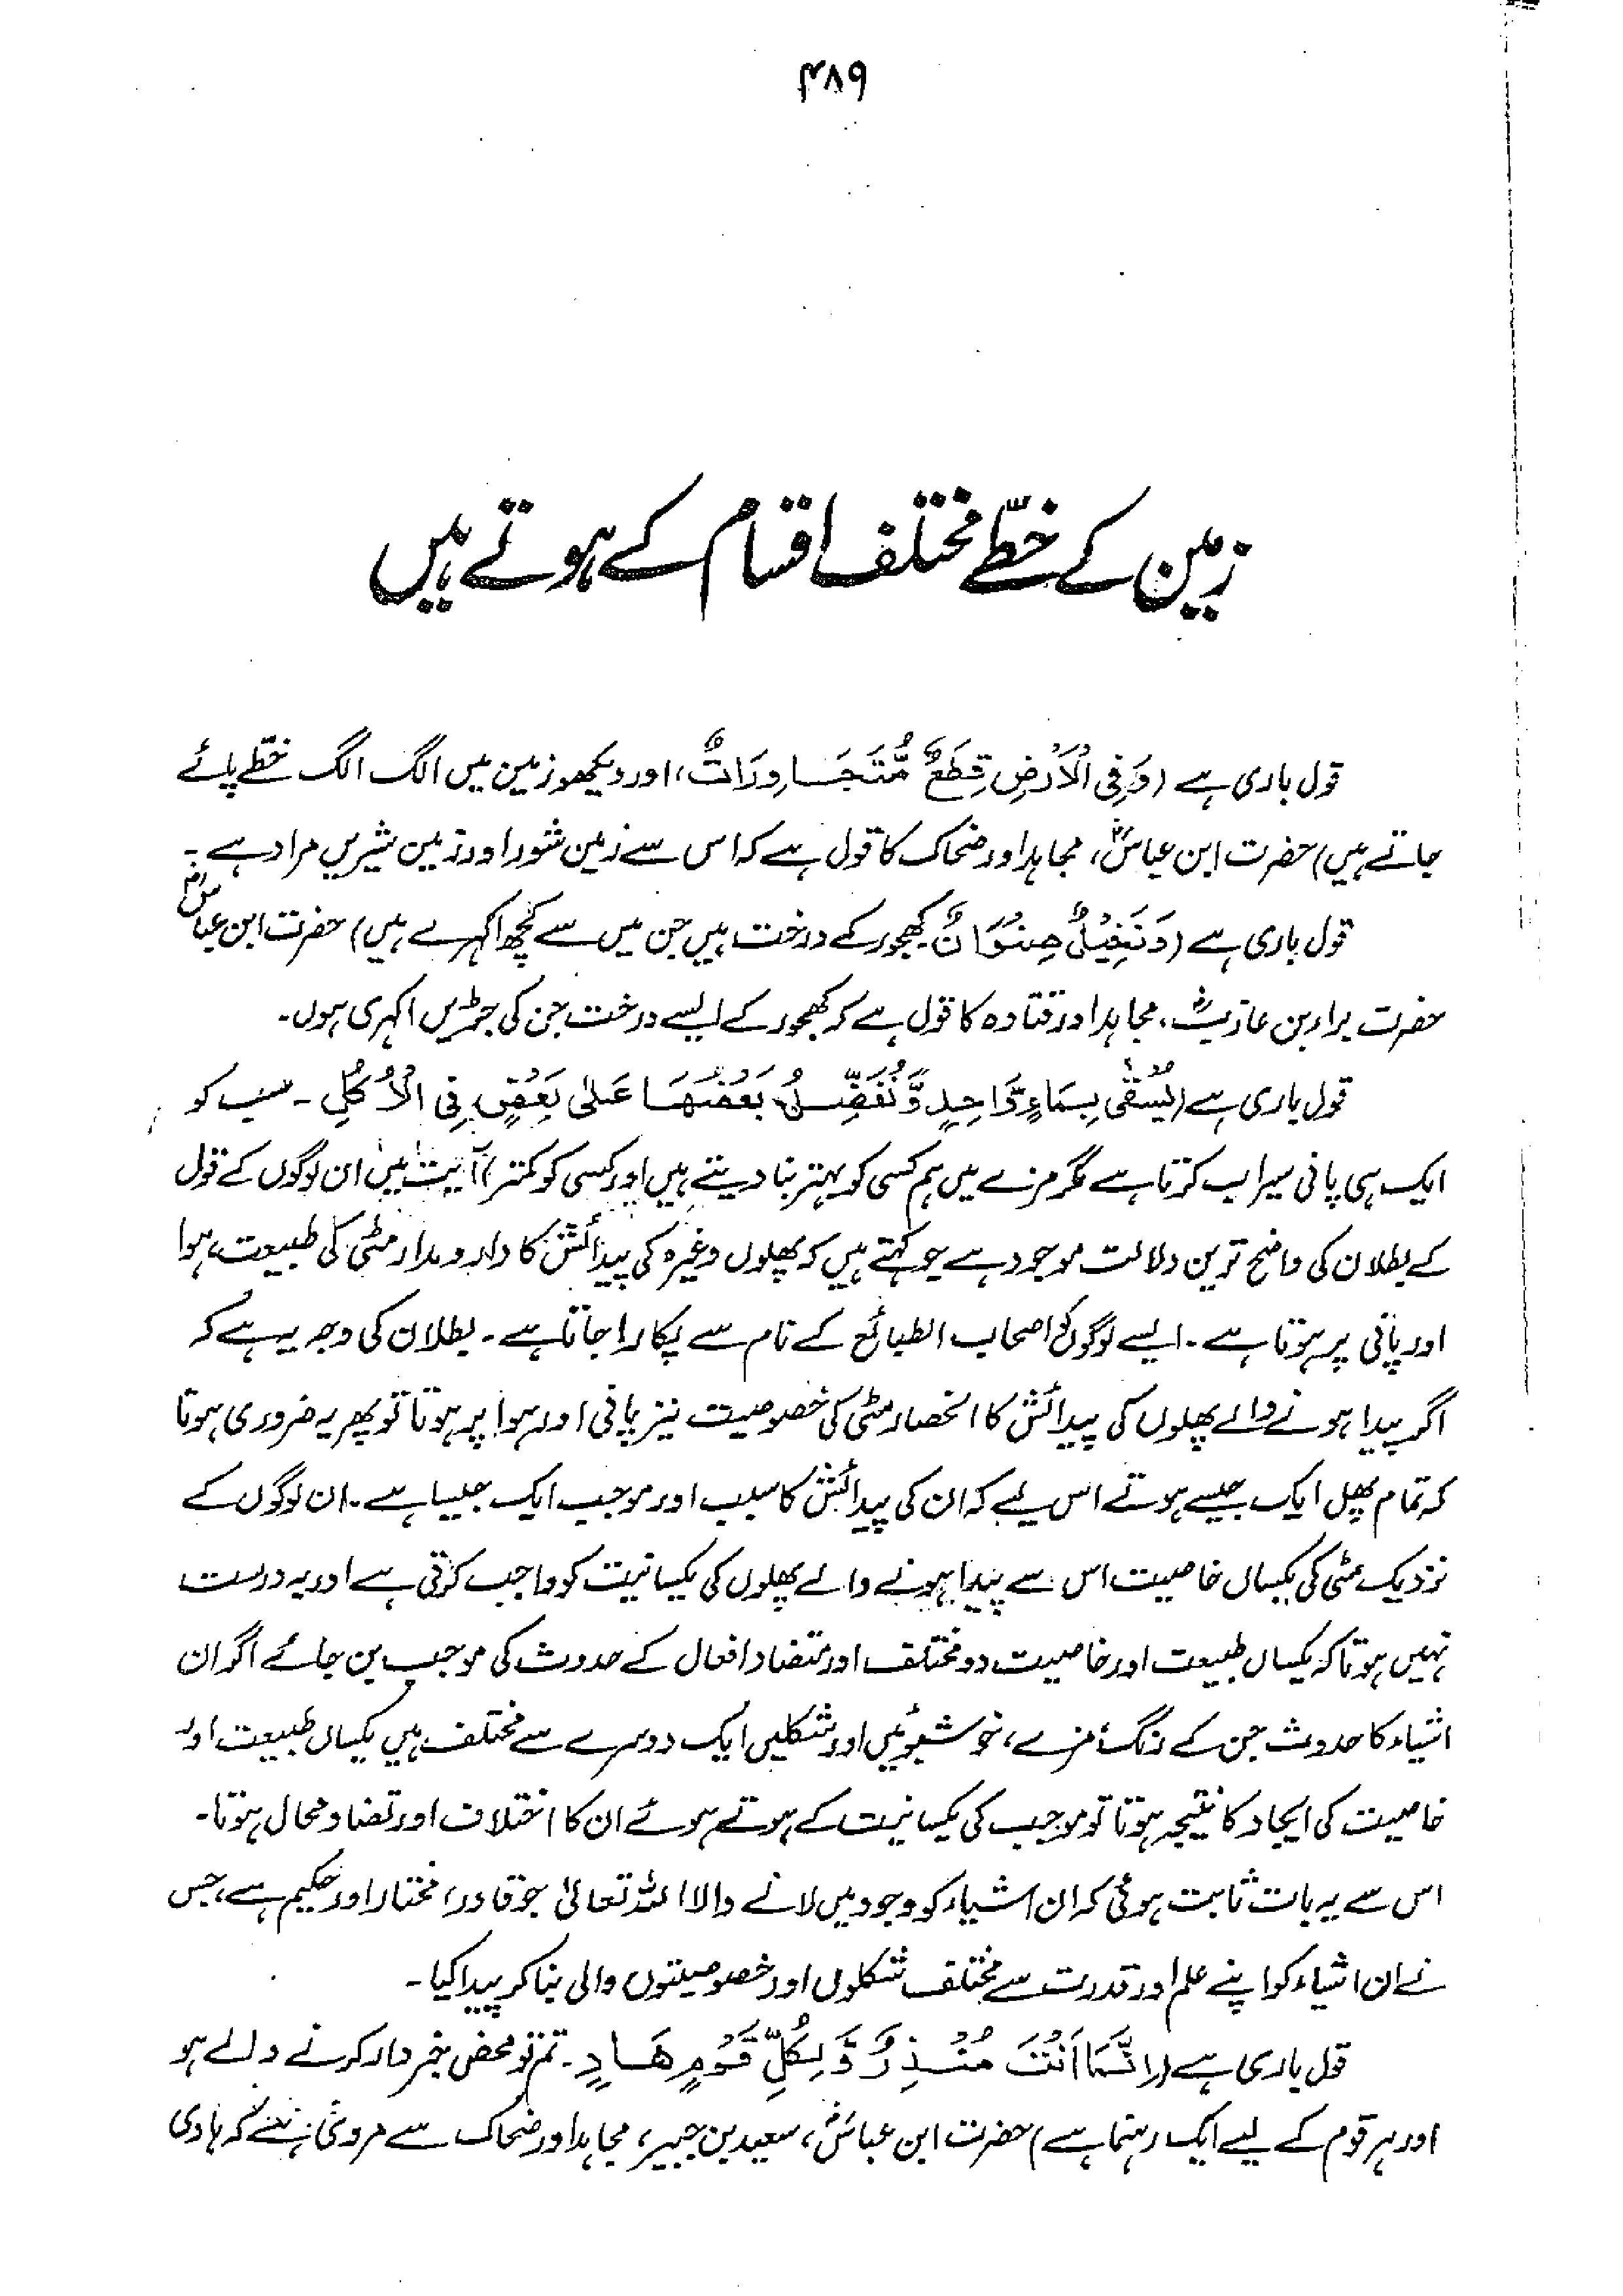 ۴۸۹
زمین کے خطّے مختلف اقسام کے ہوتے ہیں
قول باری ہے (وَفِی الْاَرْضِ قِطَعٌ مُّتَجَاوِرَاتٌ، اور دیکھو زمین میں الگ الگ خطّے پائے
جاتے ہیں) حضرت ابن عباسؓ، مجاہد اور ضحاک کا قول ہے کہ اس سے زمین شور اور زمین شیریں مراد ہے۔
قول باری ہے (وَنَخِیْلٌ صِنْوَانٌ۔ کھجور کے درخت ہیں جن میں سے کچھ اکہرے ہیں) حضرت ابن عباسؓ
حضرت براء بن عازبؓ، مجاہد اور قتادہ کا قول ہے کہ کھجور کے ایسے درخت جن کی جڑیں اکہری ہوں۔
قول باری ہے (یُسْقٰی بِمَاءٍ وَّاحِدٍ وَّنُفَضِّلُ بَعْضَهَا عَلٰی بَعْضٍ فِی الْاُکُلِ۔ سب کو
ایک ہی پانی سیراب کرتا ہے مگر مزے میں ہم کسی کو بہتر بنا دیتے ہیں اور کسی کو کمتر) آیت میں ان لوگوں کے قول
کے بطلان کی واضح ترین دلالت موجود ہے جو کہتے ہیں کہ پھلوں وغیرہ کی پیدائش کا دارومدار مٹی کی طبیعت، ہوا
اور پانی پر ہوتا ہے۔ ایسے لوگوں کو اصحاب الطبائع کے نام سے پکارا جاتا ہے۔ بطلان کی وجہ یہ ہے کہ
اگر پیدا ہونے والے پھلوں کی پیدائش کا انحصار مٹی کی خصوصیت نیز پانی اور ہوا پر ہوتا تو پھر یہ ضروری ہوتا
کہ تمام پھل ایک جیسے ہوتے اس لیے کہ ان کی پیدائش کا سبب اور موجب ایک جیسا ہے۔ ان لوگوں کے
نزدیک مٹی کی یکساں خاصیت اس سے پیدا ہونے والے پھلوں کی یکسانیت کو واجب کرتی ہے اور یہ درست
نہیں ہوتا کہ یکساں طبیعت اور خاصیت دو مختلف اور متضاد افعال کے حدوث کی موجب بن جائے اگر ان
اشیاء کا حدوث جن کے رنگ، مزے، خوشبوئیں اور شکلیں ایک دوسرے سے مختلف ہیں یکساں طبیعت اور
خاصیت کی ایجاد کا نتیجہ ہوتا تو موجب کی یکسانیت کے ہوتے ہوئے ان کا اختلاف اور تضاد محال ہوتا۔
اس سے یہ بات ثابت ہوئی کہ ان اشیاء کو وجود میں لانے والا اللہ تعالیٰ جو قادر، مختار اور حکیم ہے، جس
نے ان اشیاء کو اپنے علم اور قدرت سے مختلف شکلوں اور خصوصیتوں والی بنا کر پیدا کیا۔
قول باری ہے (اِنَّمَا اَنْتَ مُنْذِرٌ وَّلِکُلِّ قَوْمٍ هَادٍ۔ تم تو محض خبردار کرنے والے ہو
اور ہر قوم کے لیے ایک رہنما ہے) حضرت ابن عباسؓ، سعید بن جبیر، مجاہد اور ضحاک سے مروی ہے کہ ہادی